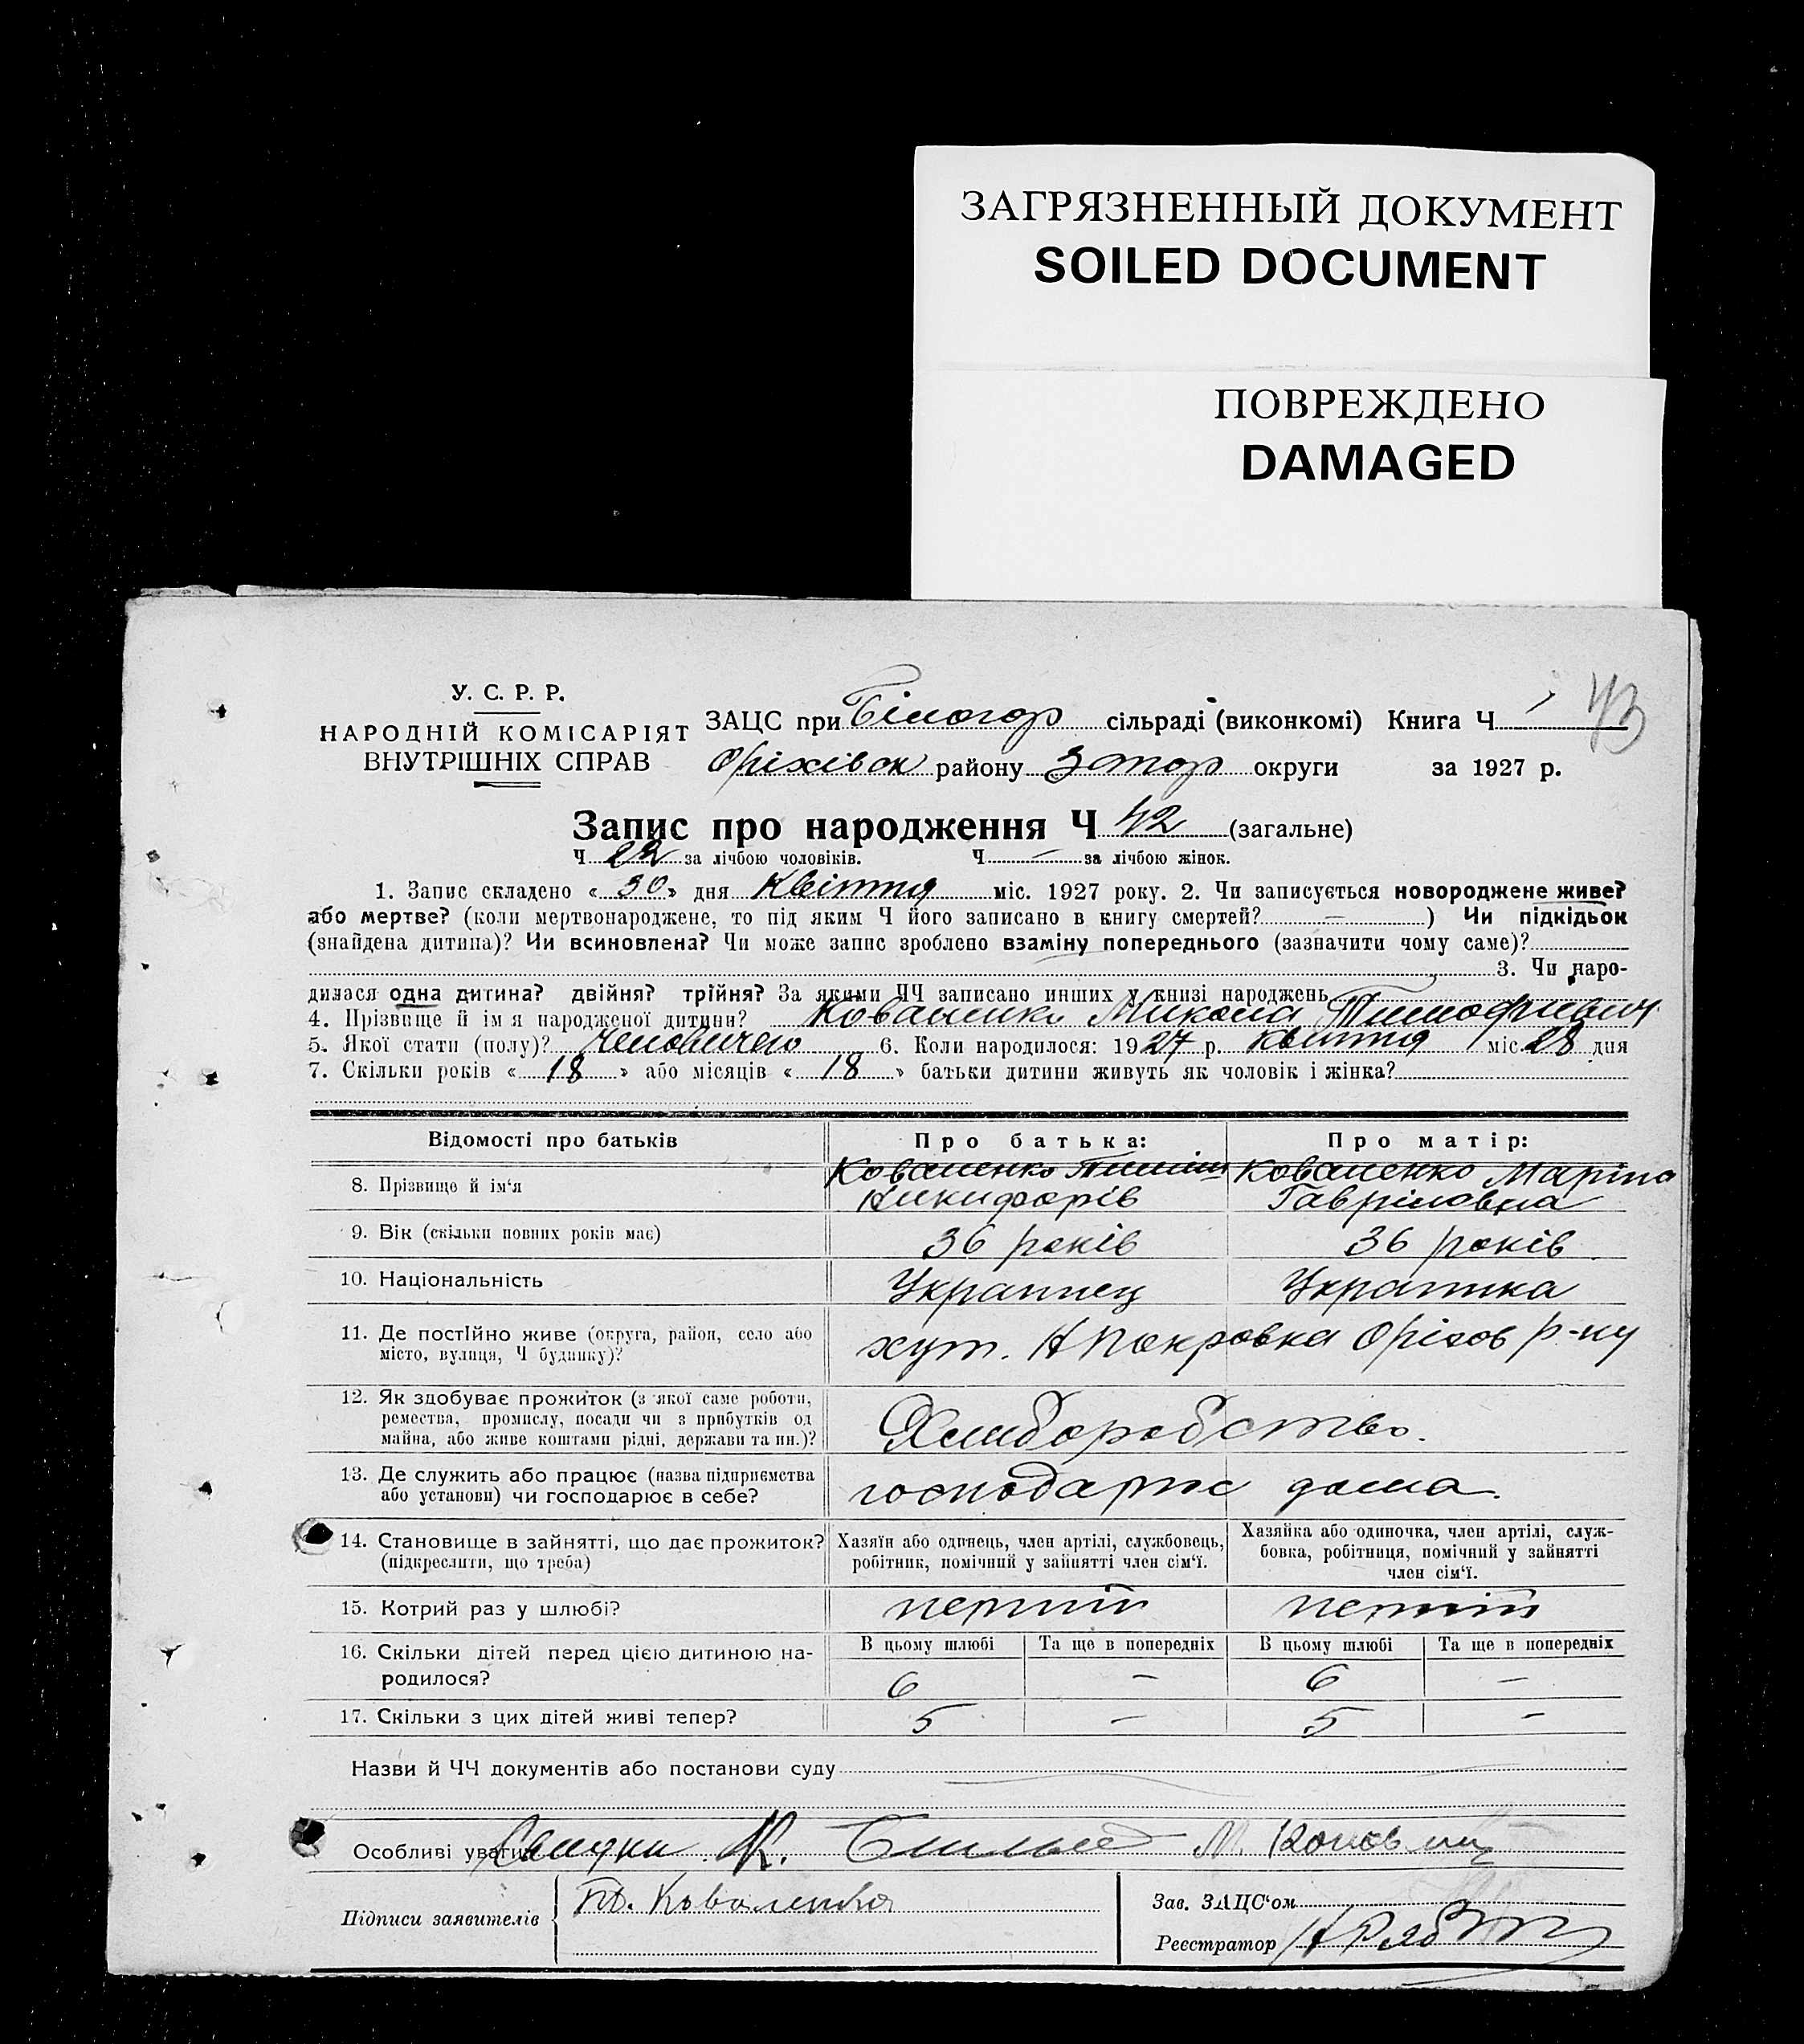 ЗАГРЯЗНЕННЫЙ ДОКУМЕНТ
SOILED DOCUMENT
ПОВРЕЖДЕНО
DAMAGED
У. С. Р. Р.
НАРОДНІЙ КОМІСАРІЯТ
ВНУТРІШНІХ СПРАВ
ЗАЦС при Білогор сільраді (виконкомі) Книга Ч 1
43
Оріхівск району Запор округи за 1927 р.
Запис про народження Ч 42 (загальне)
Ч 22 за лічбою чоловіків. Ч — за лічбою жінок.
1. Запис складено « 30 » дня Квітня міс. 1927 року. 2. Чи записується новороджене живе?
або мертве? (коли мертвонароджене, то під яким Ч його записано в книгу смертей? — ) Чи підкідьок
(знайдена дитина)? Чи всиновлена? Чи може запис зроблено взаміну попереднього (зазначити чому саме)?
3. Чи наро-
дилася одна дитина? двійня? трійня? За якими ЧЧ записано инших у книзі народжень
4. Прізвище й ім'я народженої дитини? Коваленко Микола Тимофиевич
5. Якої стати (полу)? Человичею 6. Коли народилося: 1927 р. Квітня міс. 28 дня
7. Скільки років « 18 » або місяців « 18 » батьки дитини живуть як чоловік і жінка?
Відомості про батьків Про батька: Про матір:
8. Прізвище й ім'я Коваленко Тиміш Никифорів Коваленко Маріна Гавриловна
9. Вік (скільки повних років має) 36 років 36 років
10. Національність Украинец Украінка
11. Де постійно живе (округа, район, село або
місто, вулиця, Ч будинку)? хут. Н Покровка Оріхов р-ну
12. Як здобуває прожиток (з якої саме роботи,
ремества, промислу, посади чи з прибутків од
майна, або живе коштами рідні, держави та ин.)? Хлиборобство.
13. Де служить або працює (назва підприємства
або установи) чи господарює в себе? господарює дома.
14. Становище в зайнятті, що дає прожиток?
(підкреслити, що треба)
Хазяїн або одинець, член артілі, службовець,
робітник, помічний у зайнятті член сім'ї.
Хазяйка або одиночка, член артілі, служ-
бовка, робітниця, помічний у зайнятті
член сім'ї.
15. Котрий раз у шлюбі? перший перший
16. Скільки дітей перед цією дитиною на-
родилося?
В цьому шлюбі Та ще в попередніх В цьому шлюбі Та ще в попередніх
6 — 6 —
17. Скільки з цих дітей живі тепер? 5 — 5 —
Назви й ЧЧ документів або постанови суду
Особливі уваги К. М.
Підписи заявителів Т. Коваленко
Зав. ЗАЦС'ом
Реєстратор